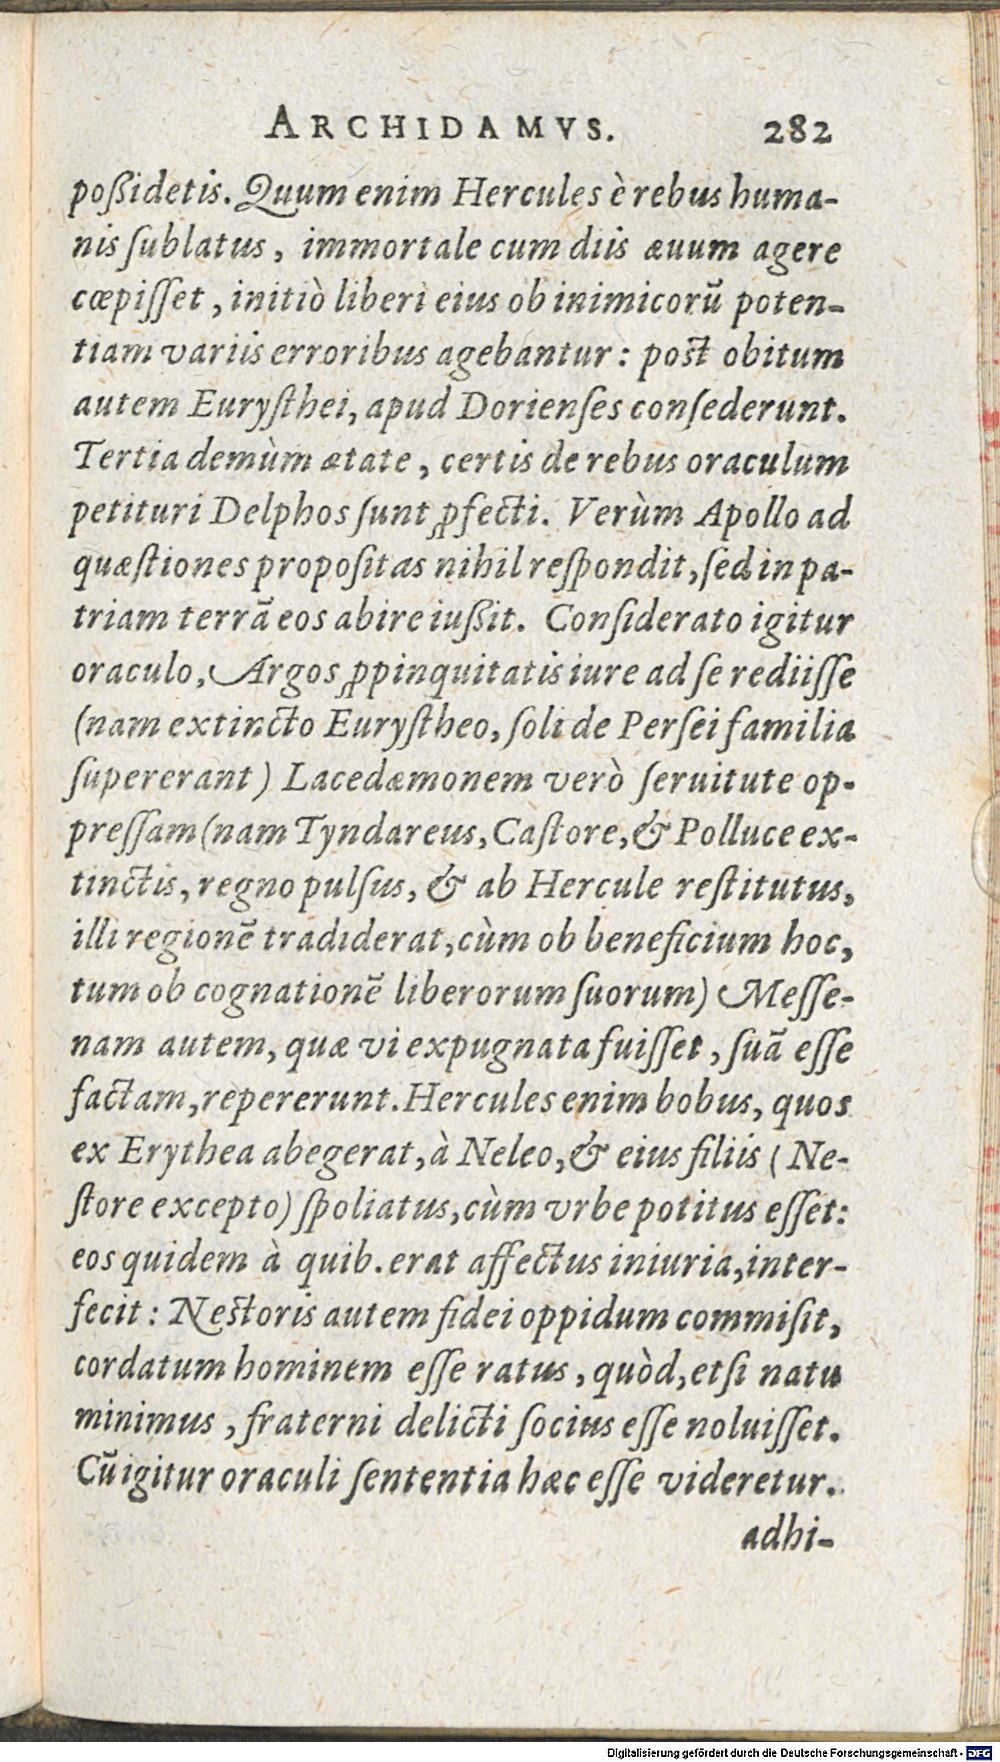 ARCHIDAMVS. 282
poßidetis. Quum enim Hercules è rebus huma-
nis ſublatus, immortale cum diis æuum agere
cœpiſſet, initiò liberi eius ob inimicorũ poten-
tiam variis erroribus agebantur: poſt obitum
autem Euryſthei, apud Dorienſes conſederunt.
Tertia demùm ætate, certis de rebus oraculum
petituri Delphos ſunt ꝓfecti. Verùm Apollo ad
quæſtiones propoſitas nihil reſpondit, ſed in pa-
triam terrã eos abire iußit. Conſiderato igitur
oraculo, Argos ꝓpinquitatis iure ad ſe rediiſſe
(nam extincto Euryſtheo, ſoli de Perſei familia
ſupererant) Lacedæmonem verò ſeruitute op-
preſſam (nam Tyndareus, Caſtore, & Polluce ex-
tinctis, regno pulſus, & ab Hercule reſtitutus,
illi regionẽ tradiderat, cùm ob beneficium hoc,
tum ob cognationẽ liberorum ſuorum) Meſſe-
nam autem, quæ vi expugnata fuiſſet, ſuã eſſe
factam, repererunt. Hercules enim bobus, quos
ex Erythea abegerat, à Neleo, & eius filiis (Ne-
ſtore excepto) ſpoliatus, cùm vrbe potitus eſſet:
eos quidem à quib. erat affectus iniuria, inter-
fecit: Neſtoris autem fidei oppidum commiſit,
cordatum hominem eſſe ratus, quòd, etſi natu
minimus, fraterni delicti ſocius eſſe noluiſſet.
Cũ igitur oraculi ſententia hæc eſſe videretur.
adhi-
Digitalisierung gefördert durch die Deutsche Forschungsgemeinschaft - DFG